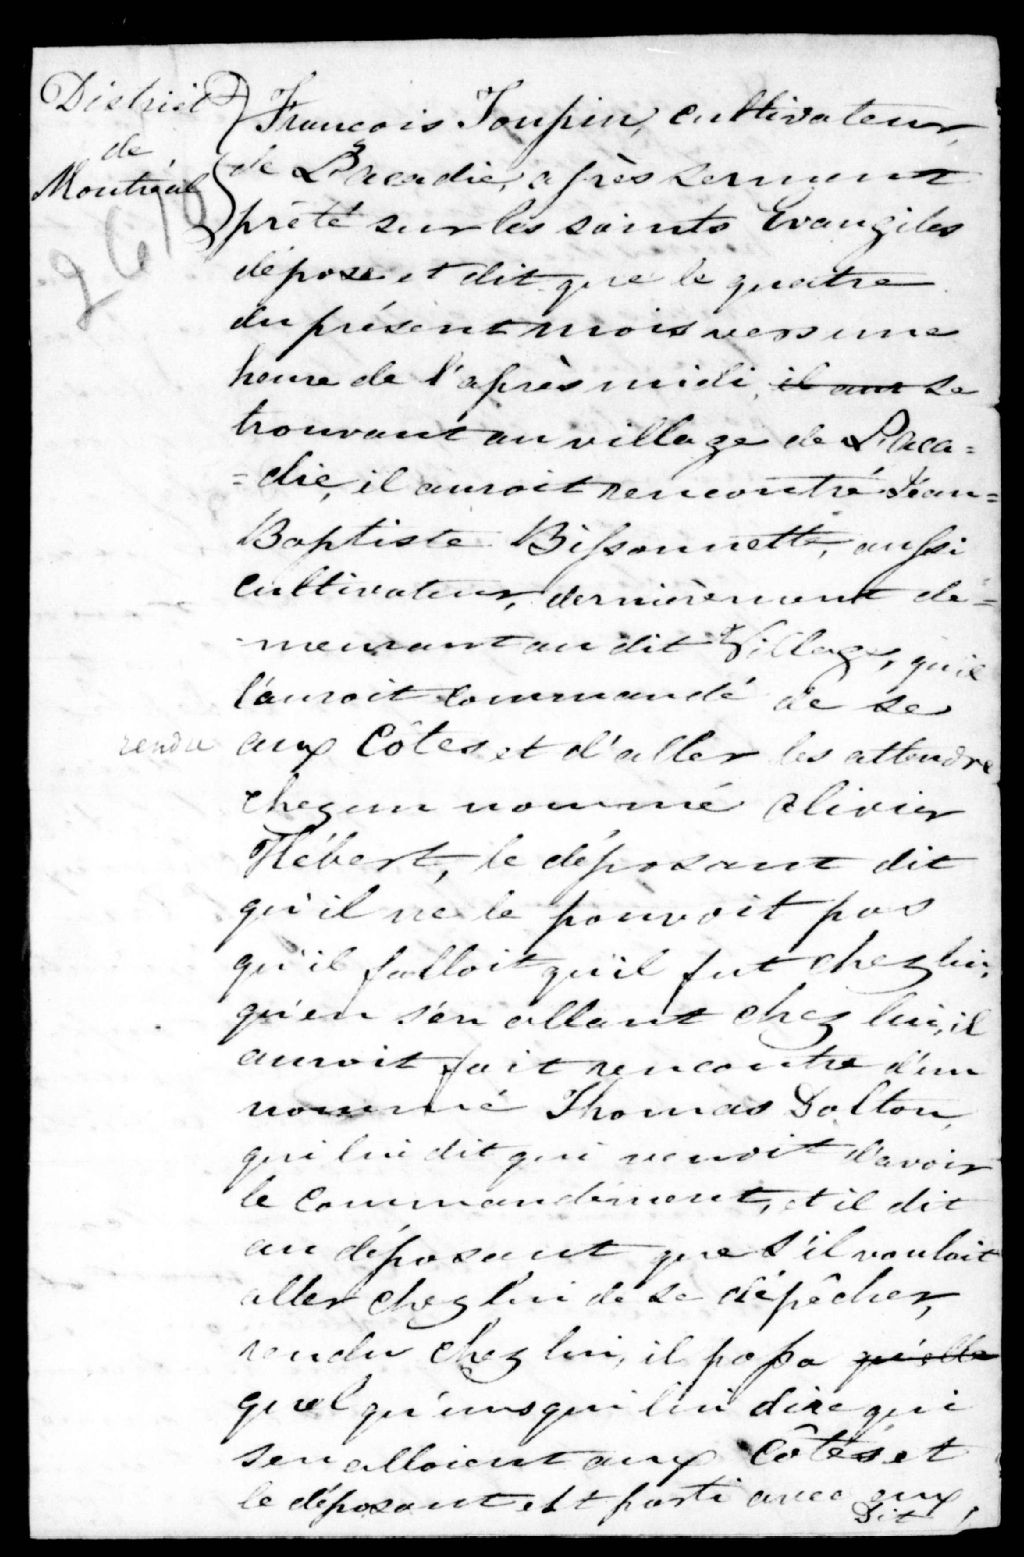 District
de
Montréal
2610
François Toupin, cultivateur,
de L'acadie, après serment
prêté sur les saints Evangiles
dépose et dit que le quatre
du présent mois vers une
heure de l'après midi, il aur se
trouvant au village de L'aca=
=die, il auroit rencontré Jean=
Baptiste Bissonnette, aussi
cultivateur, dernièrement de=
meurant au dit Village, qu'il
l'auroit commandé de se
rendu aux Côtes et d'aller les attendre
chez un nommé Olivier
Hébert, le déposant dit
qu'il ne le pouvoit pas
qu'il falloit qu'il fut chez lui,
qu'en s'en allant chez lui, il
auroit fait rencontre d'un
nommé Thomas Dalton,
qui lui dit qui venoit d'avoir
le commandement, et il dit
au déposant que s'il vouloit
aller chez lui de se dépêcher,
rendu chez lui, il passa qu'elle
quel qu'uns qui lui dire qui
s'en alloient aux Côtes et
le déposant est parti avec eux,
Dit